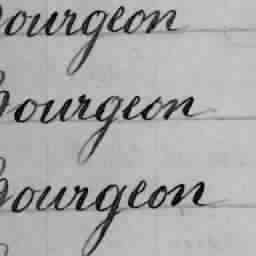 Bourgeon
Bourgeon
Bourgeon